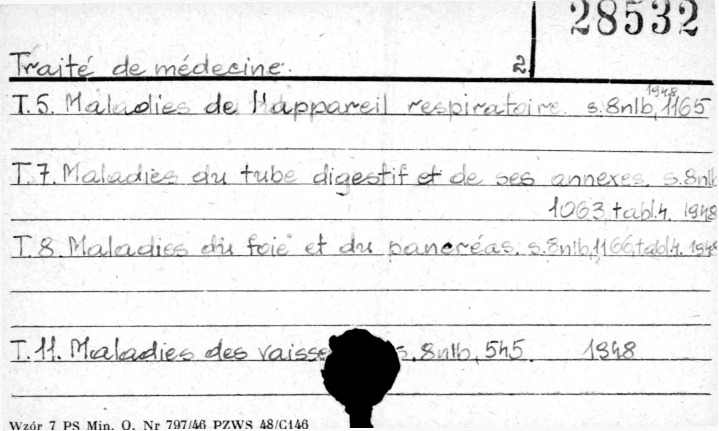 28532
Traité de médecine. 2
T.5. Maladies de l'appareil respiratoire. s.8nlb,1165 1948
T.7. Maladies du tube digestif et de ses annexes. s.8nlb
1063,tabl.4. 1948
T.8. Maladies du foie et du pancréas. s.8nlb,1166,tabl.4. 1948
T.11. Maladies des s.8nlb,545. 1948
Wzór 7 PS Min. O. Nr 797/46 PZWS 48/C146